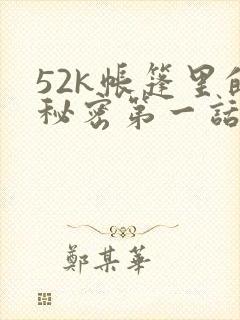 52k帐篷里的
秘密第一話
鄭某華